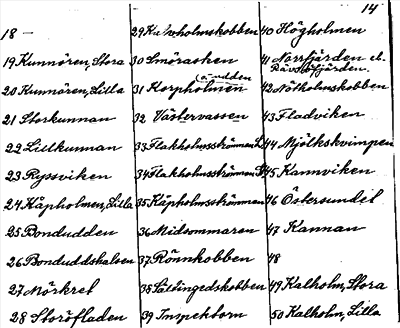 14
18 —
19 Kunnören, Stora
20 Kunnören, Lilla
21 Storkunnan
22 Lillkunnan
23 Ryssviken
24 Käpholmen, Lilla
25 Bondudden
26 Bonduddshalsen
27 Mörkret
28 Storöfladen
29 Kalvholmskobben
30 Smörasken
(audden
31 Korpholmen
32 Västervassen
33 Flakholmsströmmen L.
34 Flakholmsströmmen S.
35 Käpholmsströmmen
36 Midsommaren
37 Rönnkobben
38 Lättingedskobben
39 Inspektorn
40 Högholmen
41 Norrfjärden el.
Rävsöfjärden
42 Nötholmskobben
43 Fladviken
44 Mjölkskvimpen
45 Kannviken
46 Östersundet
47 Kannan
48
49 Kalholm, Stora
50 Kalholm, Lilla